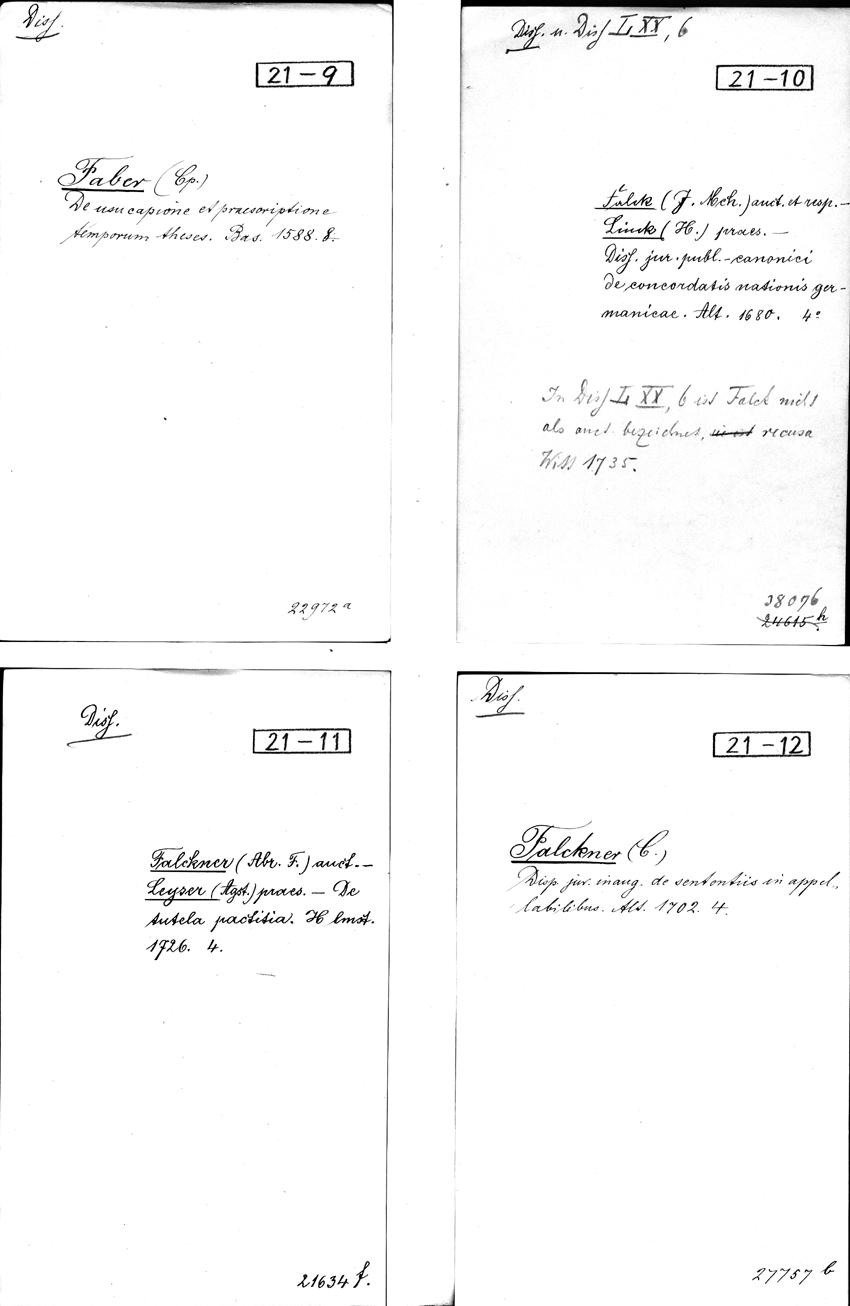 Diss.
21-9
Faber (Cp.)
De usucapione et praescriptione
temporum theses. Bas. 1588. 8.
22972 a
Diss. u. Diss L XX, 6
21-10
Falck (J. Mch.) auct. et resp. –
Linck (H.) praes. –
Diss. jur. publ.-canonici
de concordatis nationis ger-
manicae. Alt. 1680. 4°
In Diss L XX, 6 ist Falck nicht
als auct. bezeichnet, recusa
Witt 1735.
38076
24615 h
Diss.
21-11
Falckner (Abr. F.) auct. –
Leyser (Agst.) praes. – De
tutela pactitia. Hlmst.
1726. 4.
21634 f.
Diss.
21-12
Falckner (C.)
Disp. jur. inaug. de sententiis in appel-
labilibus. Alt. 1702. 4.
27757 b